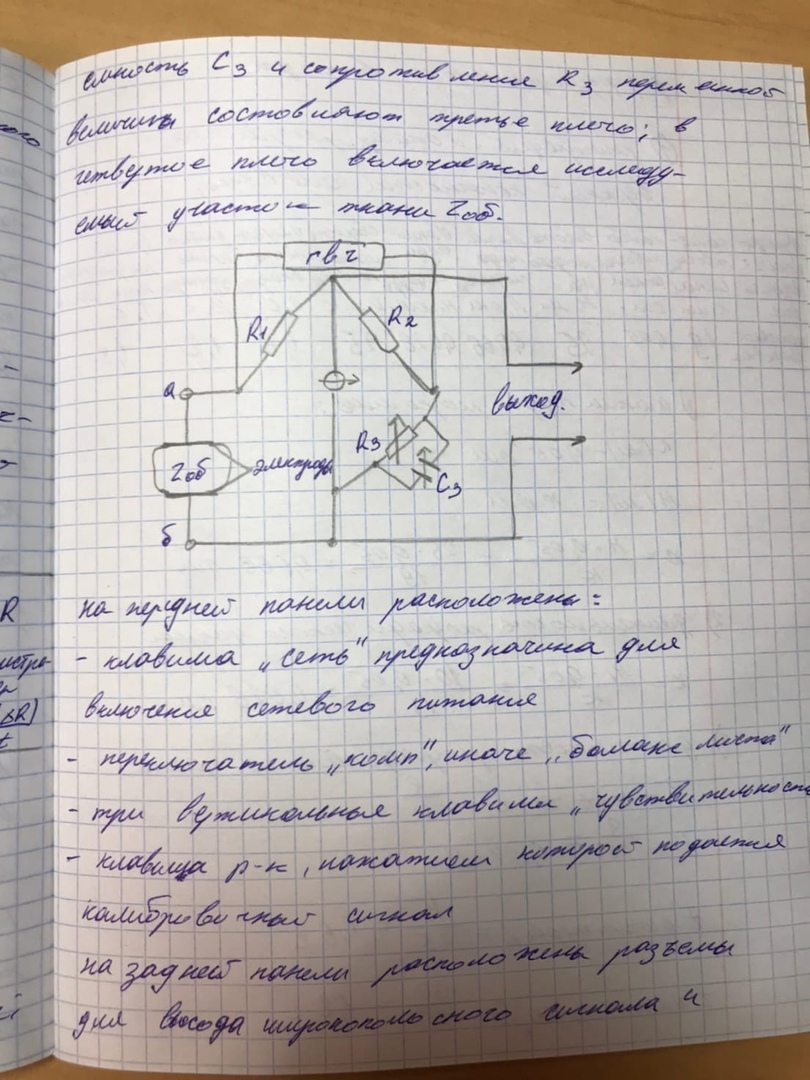 емкость C3 и сопротивления R3 переменной
величины составляют третье плечо; в
четвертое плечо включается исследу-
емый участок ткани Zоб.
гвч
R1
R2
а
выход.
R3
Zоб
электроды
C3
б
на передней панели расположены:
- клавиша „сеть" предназначина для
включения сетевого питания
- переключатель „комп", иначе „баланс моста"
- три вертикольные клавиши „чувствительность
- клавища р-к, нажатием которой подается
калибровочный сигнал
на задней панели расположены разъемы
для выхода широкополосного сигнала и
R
ΔR
t